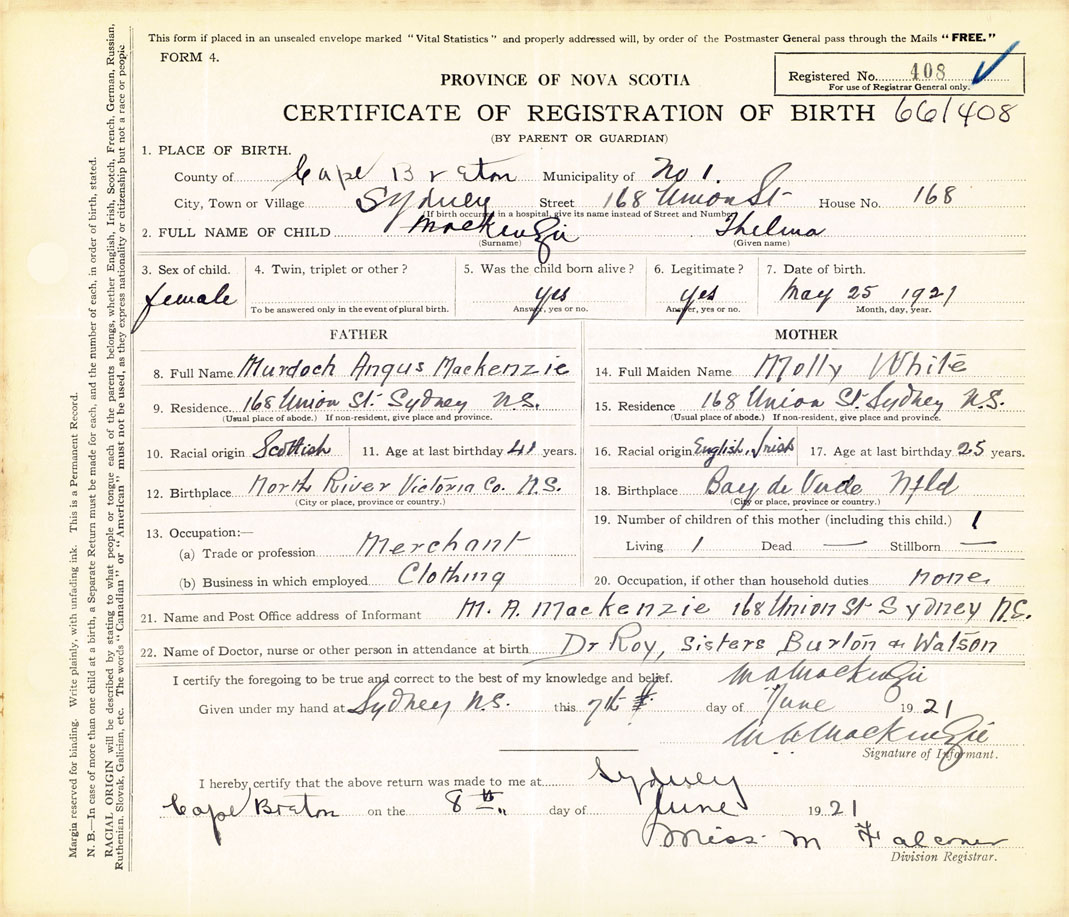 This form if placed in an unsealed envelope marked "Vital Statistics" and properly addressed will, by order of the Postmaster General pass through the Mails "FREE."
FORM 4.
Registered No. 408
For use of Registrar General only.
PROVINCE OF NOVA SCOTIA
CERTIFICATE OF REGISTRATION OF BIRTH 661408
(BY PARENT OR GUARDIAN)
1. PLACE OF BIRTH.
County of Cape Breton Municipality of No 1.
City, Town or Village Sydney Street 168 Union St House No. 168
(If birth occurred in a hospital, give its name instead of Street and Number)
2. FULL NAME OF CHILD Mackenzie Thelma
(Surname) (Given name)
3. Sex of child. 4. Twin, triplet or other? 5. Was the child born alive? 6. Legitimate? 7. Date of birth.
female yes yes May 25 1921
To be answered only in the event of plural birth. Answer, yes or no. Answer, yes or no. Month, day, year.
FATHER
8. Full Name Murdoch Angus Mackenzie
9. Residence 168 Union St. Sydney N.S.
(Usual place of abode.) If non-resident, give place and province.
10. Racial origin Scottish 11. Age at last birthday 41 years.
12. Birthplace North River Victoria Co. N.S.
(City or place, province or country.)
13. Occupation:—
(a) Trade or profession Merchant
(b) Business in which employed Clothing
MOTHER
14. Full Maiden Name Molly White
15. Residence 168 Union St. Sydney N.S.
(Usual place of abode.) If non-resident, give place and province.
16. Racial origin English, Irish 17. Age at last birthday 25 years.
18. Birthplace Bay de Verde Nfld
(City or place, province or country.)
19. Number of children of this mother (including this child.) 1
Living 1 Dead — Stillborn —
20. Occupation, if other than household duties none.
21. Name and Post Office address of Informant M. A. Mackenzie 168 Union St Sydney N.S.
22. Name of Doctor, nurse or other person in attendance at birth Dr Roy, Sisters Burton & Watson
I certify the foregoing to be true and correct to the best of my knowledge and belief. M A Mackenzie
Given under my hand at Sydney N.S. this 7th day of June 1921
M A Mackenzie
Signature of Informant.
I hereby certify that the above return was made to me at Sydney
Cape Breton on the 8th day of June 1921
Miss M Falconer
Division Registrar.
Margin reserved for binding. Write plainly, with unfading ink. This is a Permanent Record.
N. B.—In case of more than one child at a birth, a Separate Return must be made for each, and the number of each, in order of birth, stated.
RACIAL ORIGIN will be described by stating to what people or tongue each of the parents belongs, whether English, Irish, Scotch, French, German, Russian,
Ruthenian, Slovak, Galician, etc. The words "Canadian" or "American" must not be used, as they express nationality or citizenship but not a race or people